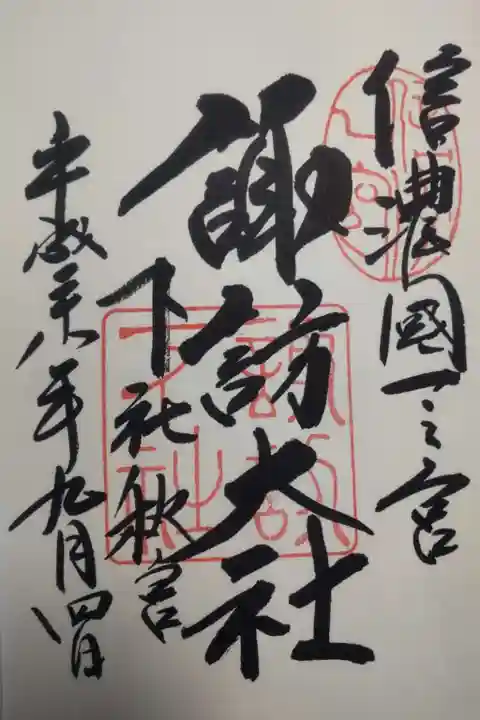 信濃國一之宮
諏訪大社
下社秋宮
平成二十八年九月四日